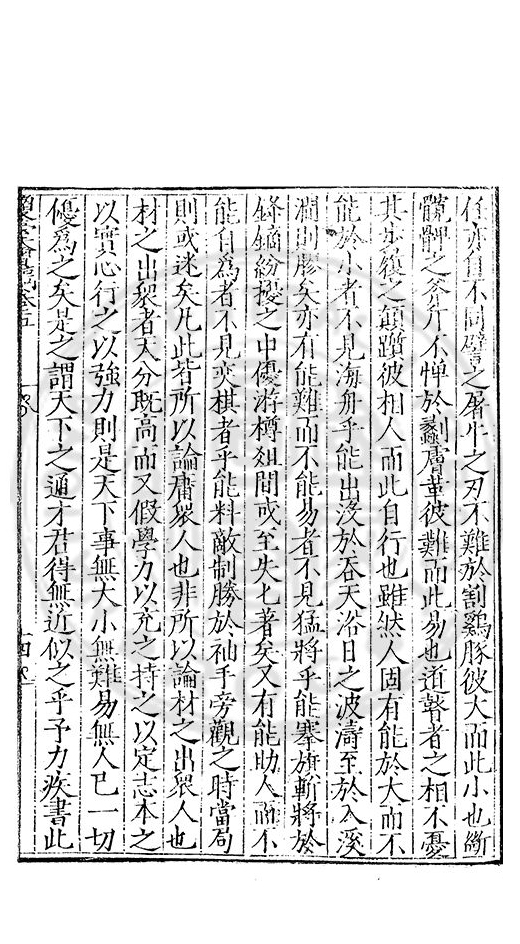 任亦自不同譬之屠牛之刃不難於割鷄豚彼大而此小也斷
髖髀之斧斤不憚於剝膚革彼難而此易也道瞽者之相不憂
其步履之顛躓彼相人而此自行也雖然人固有能於大而不
能於小者不見海舟乎能出沒於吞天浴日之波濤至於入溪
澗則膠矣亦有能難而不能易者不見猛將乎能搴旗斬將於
鋒鏑紛擾之中優游樽俎間或至失匕著矣又有能助人而不
能自為者不見奕棋者乎能料敵制勝於袖手旁觀之時當局
則或迷矣凡此若所以論庸衆人也非所以論材之出衆人也
材之出衆者天分既高而又假學力以充之持之以定志本之
以實心行之以強力則是天下事無大小無難易無人已一切
優爲之矣是之謂天下之通才君得無近似之乎予力疾書此